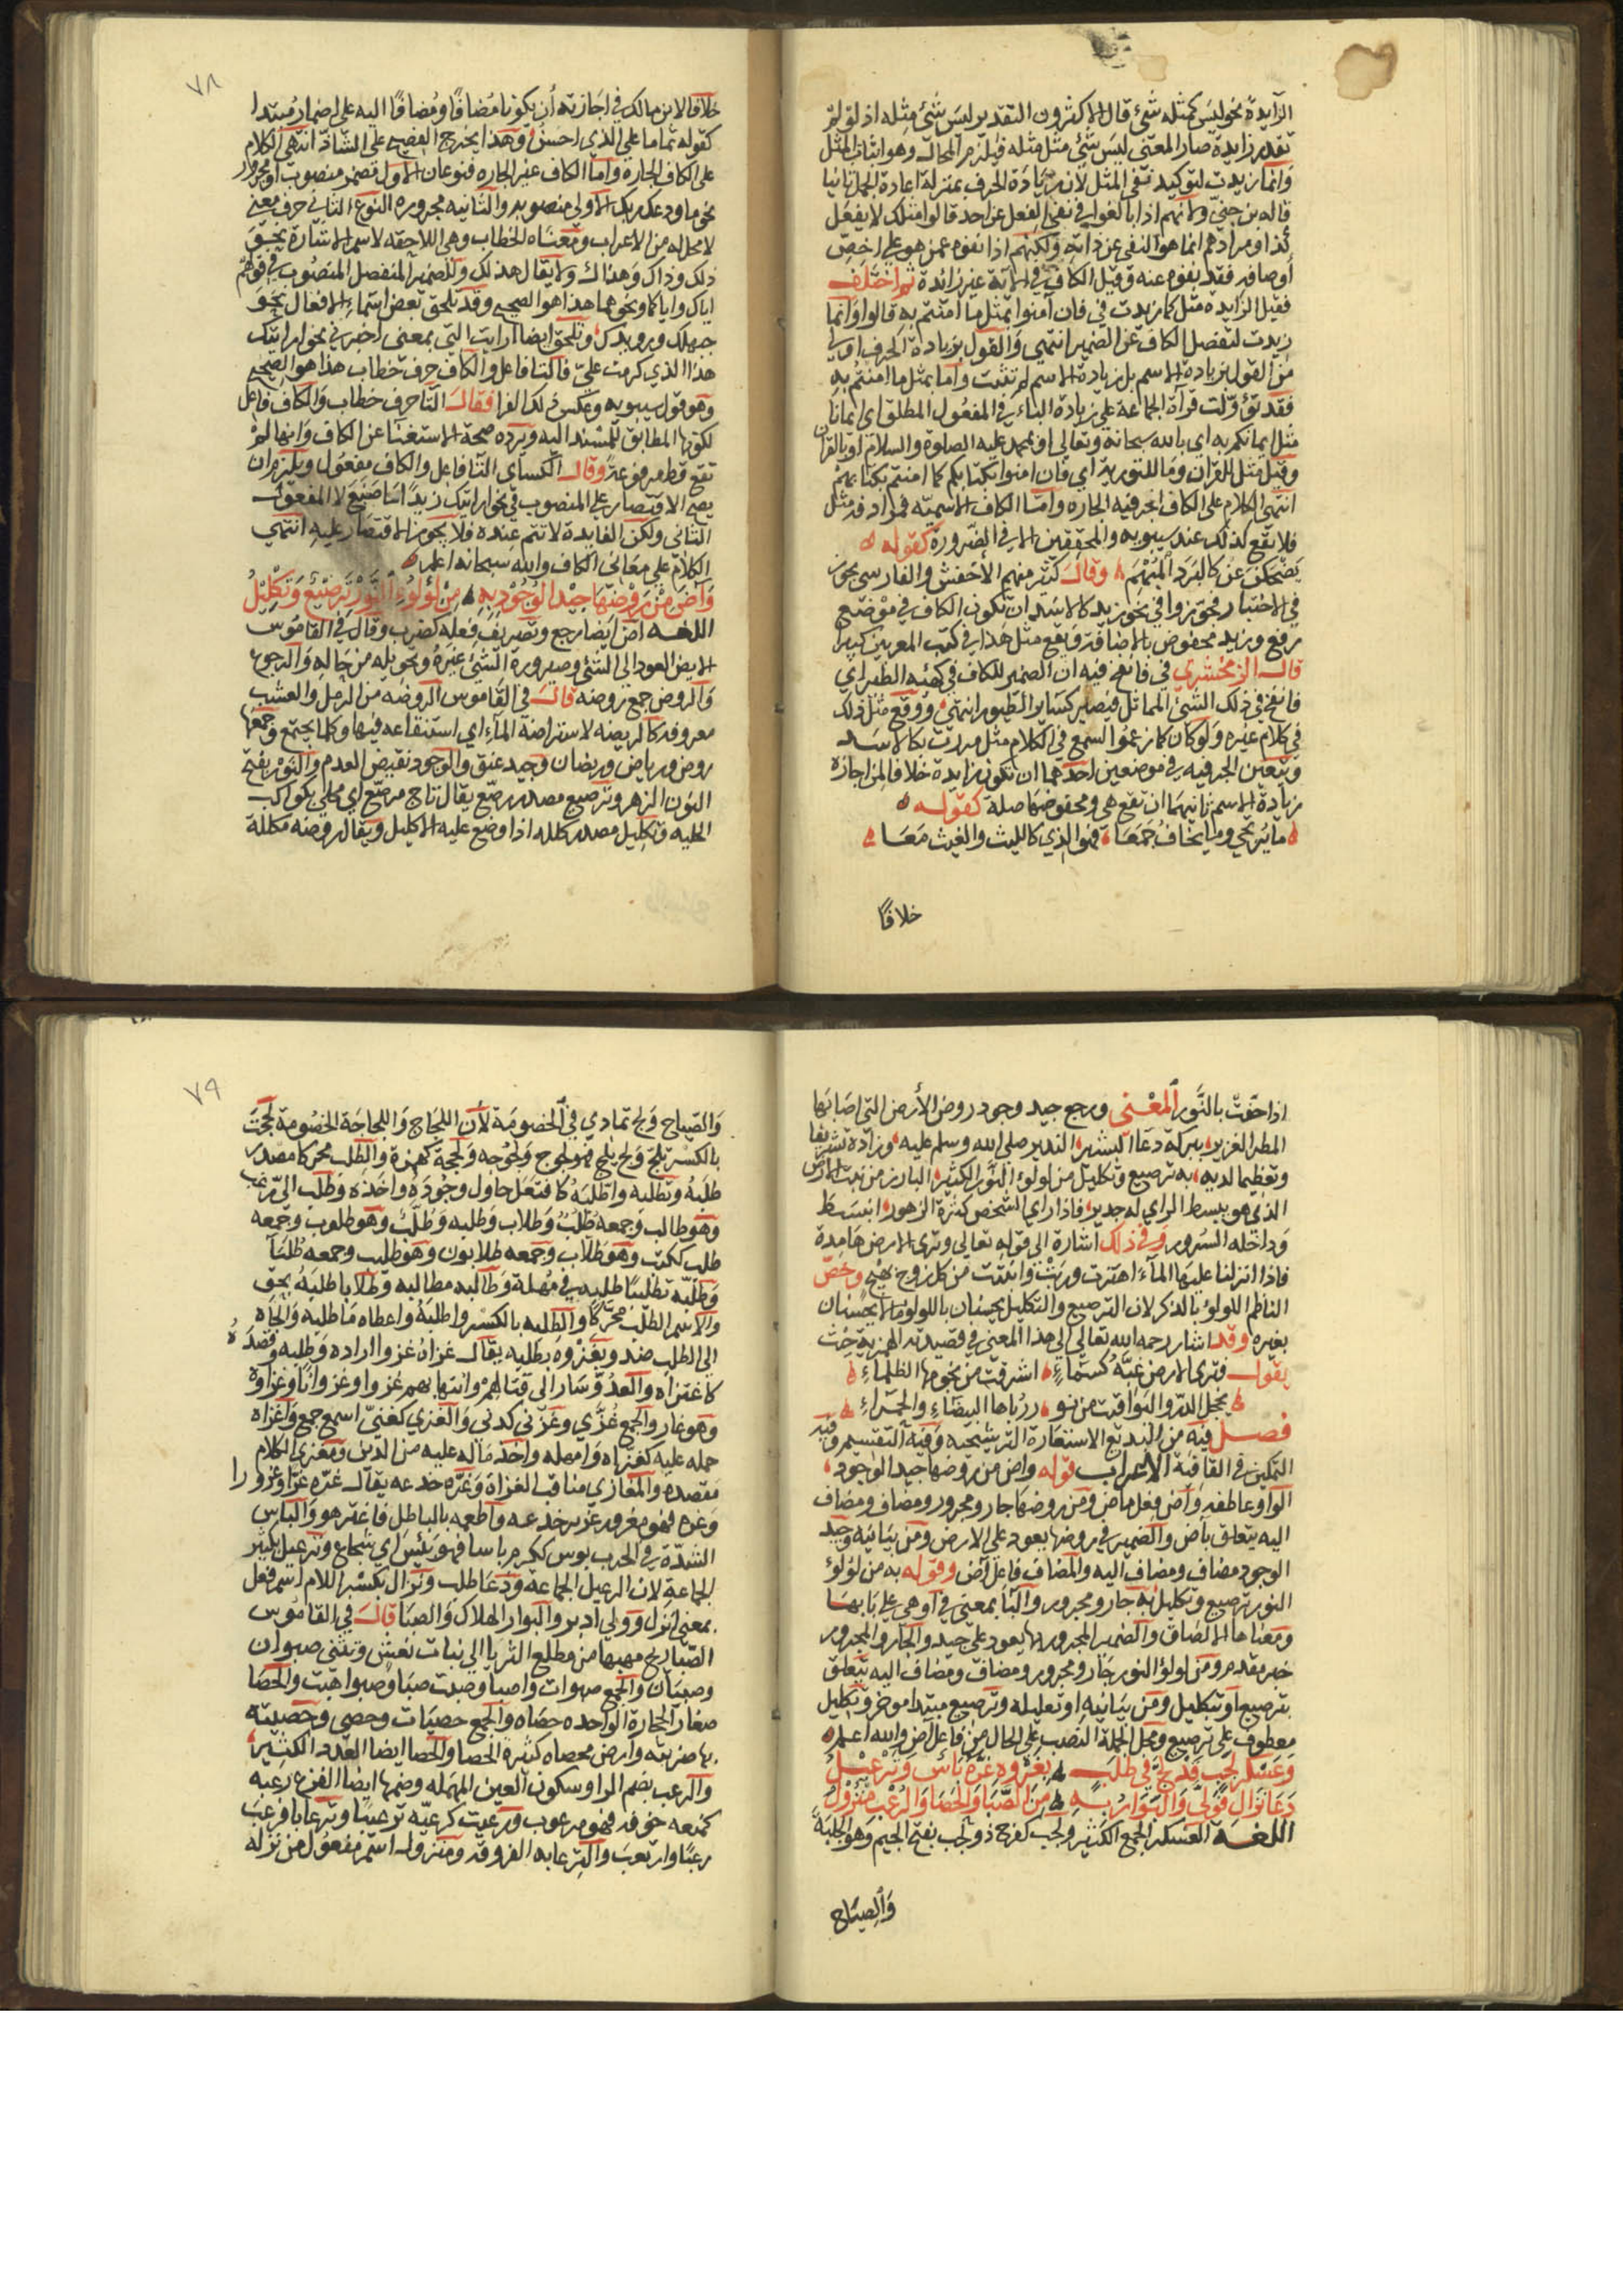 الزايدة نحو ليس كمثله شئ قال الاكثرون التقدير ليس شئ مثله اذ لو لم
تقدر زايدة صار المعنى ليس شئ مثل مثله فيلزم المحال وهو اثبات المثل
وانما زيدت لتوكيد نفي المثل لان زيادة الحرف بمنزلة اعادة الجملة ثانيا
قاله بن جني ولانهم اذا بالغوا في نفي الفعل عن احد قالوا مثلك لا يفعل
كذا ومرادهم انما هو النفي عن ذاته ولكنهم اذا نفوه عمن هو على اخص
اوصافه فقد نفوه عنه وقيل الكاف في الاية غير زائدة ثم اختلف
فقيل الزايدة مثل كما زيدت في فان آمنوا بمثل ما امنتم به قالوا وانما
زيدت لتفصل الكاف عن الضمير انتهى والقول بزيادة الحرف اولى
من القول بزيادة الاسم بل زيادة الاسم لم تثبت واما بمثل ما امنتم به
فقد تؤولت قرآة الجماعة على زيادة الباء في المفعول المطلق اى ايمانا
مثل ايمانكم به اي بالله سبحانه وتعالى او بمحمد عليه الصلوة والسلام او بالقرآن
وقيل مثل للقران وما للتورية اي فان امنوا بكتابكم كما امنتم بكتابهم
انتهى الكلام على الكاف الحرفية الجارة واما الكاف الاسمية فمرادفه مثل
فلا تقع كذلك عند سيبويه والمحققين الا في الضرورة كقوله
يضحكن عن كالبرد المنهم وقال كثير منهم الاخفش والفارسي يجوز
في الاختيار فجوزوا في نحو زيد كالاسد ان تكون الكاف في موضع
رفع وزيد مخفوض بالاضافة ويقع مثل هذا في كتب المعربين كثيرا
قال الزمخشري في فانفخ فيه ان الضمير للكاف في كهئة الطير اي
فانفخ في ذلك الشئ المماثل فيصير كساير الطيور انتهى ووقع مثل ذلك
في كلام غيره ولو كان كما زعموا لسمع في الكلام مثل مررت بكالاسد
وتتعين الحرفيه في موضعين احدهما ان تكون زايدة خلافا لمن اجازة
زيادة الاسم ثانيهما ان تقع هي ومخفوضها صلة كقوله
ما يرتجي وما يخاف جمعا فهو الذي كالليث والغيث معا
خلافًا
٧٨
خلافا لابن مالك في اجازته ان يكونا مضافًا ومضافًا اليه على اضمار مبتدا
كقوله تماما على الذي احسن وهذا تخريج الفصيح على الشاذ انتهى الكلام
على الكاف الجاره واما الكاف غير الجاره فنوعان الاول مضمر منصوب او مجرور
نحو ما ودعك ربك الاولى منصوبه والثانيه مجروره النوع الثاني حرف معنى
لا محل له من الاعراب ومعناه الخطاب وهي اللاحقه لاسم الاشارة نحو
ذلك وذاك وهذاك ولا يقال هذلك وللضمير المنفصل المنصوب في قولهم
اياك واياكما ونحوهما هذا هو الصحيح وقد تلحق بعض اسماء الافعال نحو
حيهلك ورويدك وتلحق ايضا ارايت التي بمعنى اخبرني نحو ارايتك
هذا الذي كرمت علي فالتا فاعل والكاف حرف خطاب هذا هو الصحيح
وهو قول سيبويه وعكس ذلك الفرا فقال التا حرف خطاب والكاف فاعل
لكونها المطابق للمسند اليه ويرده صحة الاستغنا عن الكاف وانها لم
تقع قط مرفوعة وقال الكساي التا فاعل والكاف مفعول ويلزم ان
يصح الاقتصار على المنصوب في نحو ارايتك زيدًا ما صنع لا المفعول
الثاني ولكن الفايدة لا تتم عنده فلا يجوز الاقتصار عليه انتهى
الكلام على معاني الكاف والله سبحانه اعلم
وآض من روضها جيد الوجود به من لؤلؤ النور ترصيع وتكليل
اللغه اض ايضا رجع وتصريف فعله كضرب وقال في القاموس
الايض العود الى الشئ وصيرورة الشئ غيره وتحويله من حاله والرجوع
والروض جمع روضه قال في القاموس الروضه من الرمل والعشب
معروفه كالريضه لاستراضة المآء اي استنقاعه فيها وكلما يجتمع وجمعها
روض ورياض وريضان وجيد عنق والوجود نقيض العدم والنور بفتح
النون الزهر وترصيع مصدر رصع يقال تاج مرصع اي محلى بكواكب
الحليه وتكليل مصدر كلله اذا وضع عليه الاكليل ويقال روضه مكللة
اذا حفت بالنور المعنى ورجع جيد وجود روض الأرض التي اصابها
المطر الغزير ببركة دعا البشير النذير صلى الله وسلم عليه وزاده تشريفا
وتعظيما لديه به ترصيع وتكليل من لولؤ النور الكثير البارز من نبت الارض
الذي هو ببسط الراي له جدير فاذا راي الشخص كثرة الزهور انبسط
وداخله السرور وفي ذلك اشارة الى قوله تعالى وترى الارض هامدة
فاذا انزلنا عليها المآء اهتزت وربت وانبتت من كل زوج بهيج وخص
الناظم اللولؤ بالذكر لان الترصيع والتكليل يحسنان باللولؤ ما لا يحسنان
بغيره وقد اشار رحمه الله تعالى الى هذا المعنى في قصيدته الهمزية حيث
يقول فترى الارض غبه كسماء اشرقت من نجومها الظلماء
يخجل الدر واليواقيت من نور رباها البيضاء والحمراء
فصل فيه من البديع الاستعارة الترشيحيه وفيه التقسيم وفيه
التمكين في القافية الاعراب قوله واض من روضها جيد الوجود
الواو عاطفه وآض فعل ماض ومن روضها جار ومجرور ومضاف ومضاف
اليه يتعلق باض والضمير في روضها يعود على الارض ومن بيانيه وجيد
الوجود مضاف ومضاف اليه والمضاف فاعل اض وقوله به من لؤلؤ
النور ترصيع وتكليل به جار ومجرور والبا بمعنى في او هي على بابها
ومعناها الالصاق والضمير المجرور بها يعود على جيد والجار والمجرور
خبر مقدم ومن لولؤ النور جار ومجرور ومضاف ومضاف اليه يتعلق
بترصيع او بتكليل ومن بيانيه او تعليله وترصيع مبتدا موخر وتكليل
معطوف على ترصيع ومحل الجملة النصب على الحال من فاعل اض والله اعلم
وعسكر لجب قد لج في طلب بغزوه غره بائس وترعيل
دعا نزال فولى والبوار به من الصبا والحصا والرعب منزول
اللغه العسكر الجمع الكثير ولجب كفرح ذو لجب بفتح الجيم وهو الجلبة
والصياح
٧٩
والصياح ولج تمادي في الخصومة لأن اللجاج واللجاجة الخصومة لججت
بالكسر تلج ولج يلج فهو لجوج ولجوجه ولججة كهمزة والطلب محركا مصدر
طلبه وتطلبه واطلبه كافتعل حاول وجوده واخذه وطلب الي رغب
وهو طالب وجمعه طلب وطلاب وطلبه وطلب وهو طلوب وجمعه
طلب ككتب وهو طلاب وجمعه طلابون وهو طلب وجمعه طلبآ
وطلبه تطليبا طلبه في مهلة وطالبه مطالبه وطلابا طلبه بحق
والاسم الطلب محركا والطلبه بالكسر واطلبه واعطاه ما طلبه والجاه
الى الطلب ضد وبغزوه بطلبه يقال غزاه غزوا اراده وطلبه وقصده
كاغتزاه والعدو سار الى قتالهم وانتهابهم غزوا وغزوانا وغزاوة
وهو غاز والجمع غزي وغزي كدلي والغزي كغني اسم جمع واغزاه
حمله عليه كغزاه وامهله واخذ ماله عليه من الدين ومغزى الكلام
مقصده والمغازي مناقب الغزاة وغره خدعه يقال غره غرا وغرورا
وغره فهو مغرور غرير خدعه واطعمه بالباطل فاغتر هو والباس
الشدة في الحرب بوس ككرم باسا فهو بئس اي شجاع وترعيل يكثير
الجماعة لان الرعيل الجماعة ودعا طلب ونزال بكسر اللام اسم فعل
بمعنى انزل وولي ادبر والبوار الهلاك والصبا قال في القاموس
الصبا ريح مهبها من مطلع الثريا الى نبات نعش وتثنى صبوان
وصبيان والجمع صبوات واصبا وصبت صبا وصبوا هبت والحصا
صغار الحجارة الواحده حصاه والجمع حصيات وحصى وحصيته
بها ضربته وارض محصاه كثيرة الحصا والحصا ايضا العدد الكثير
والرعب بضم الرا وسكون العين المهمله وضمها ايضا الفزع رعبه
كمنعه خوفه فهو مرعوب ورعيب كرعبه ترعيبا وترعابا فرعب
رعبا وارتعب والترعابه الفروقه ومنزول اسم مفعول من نزله